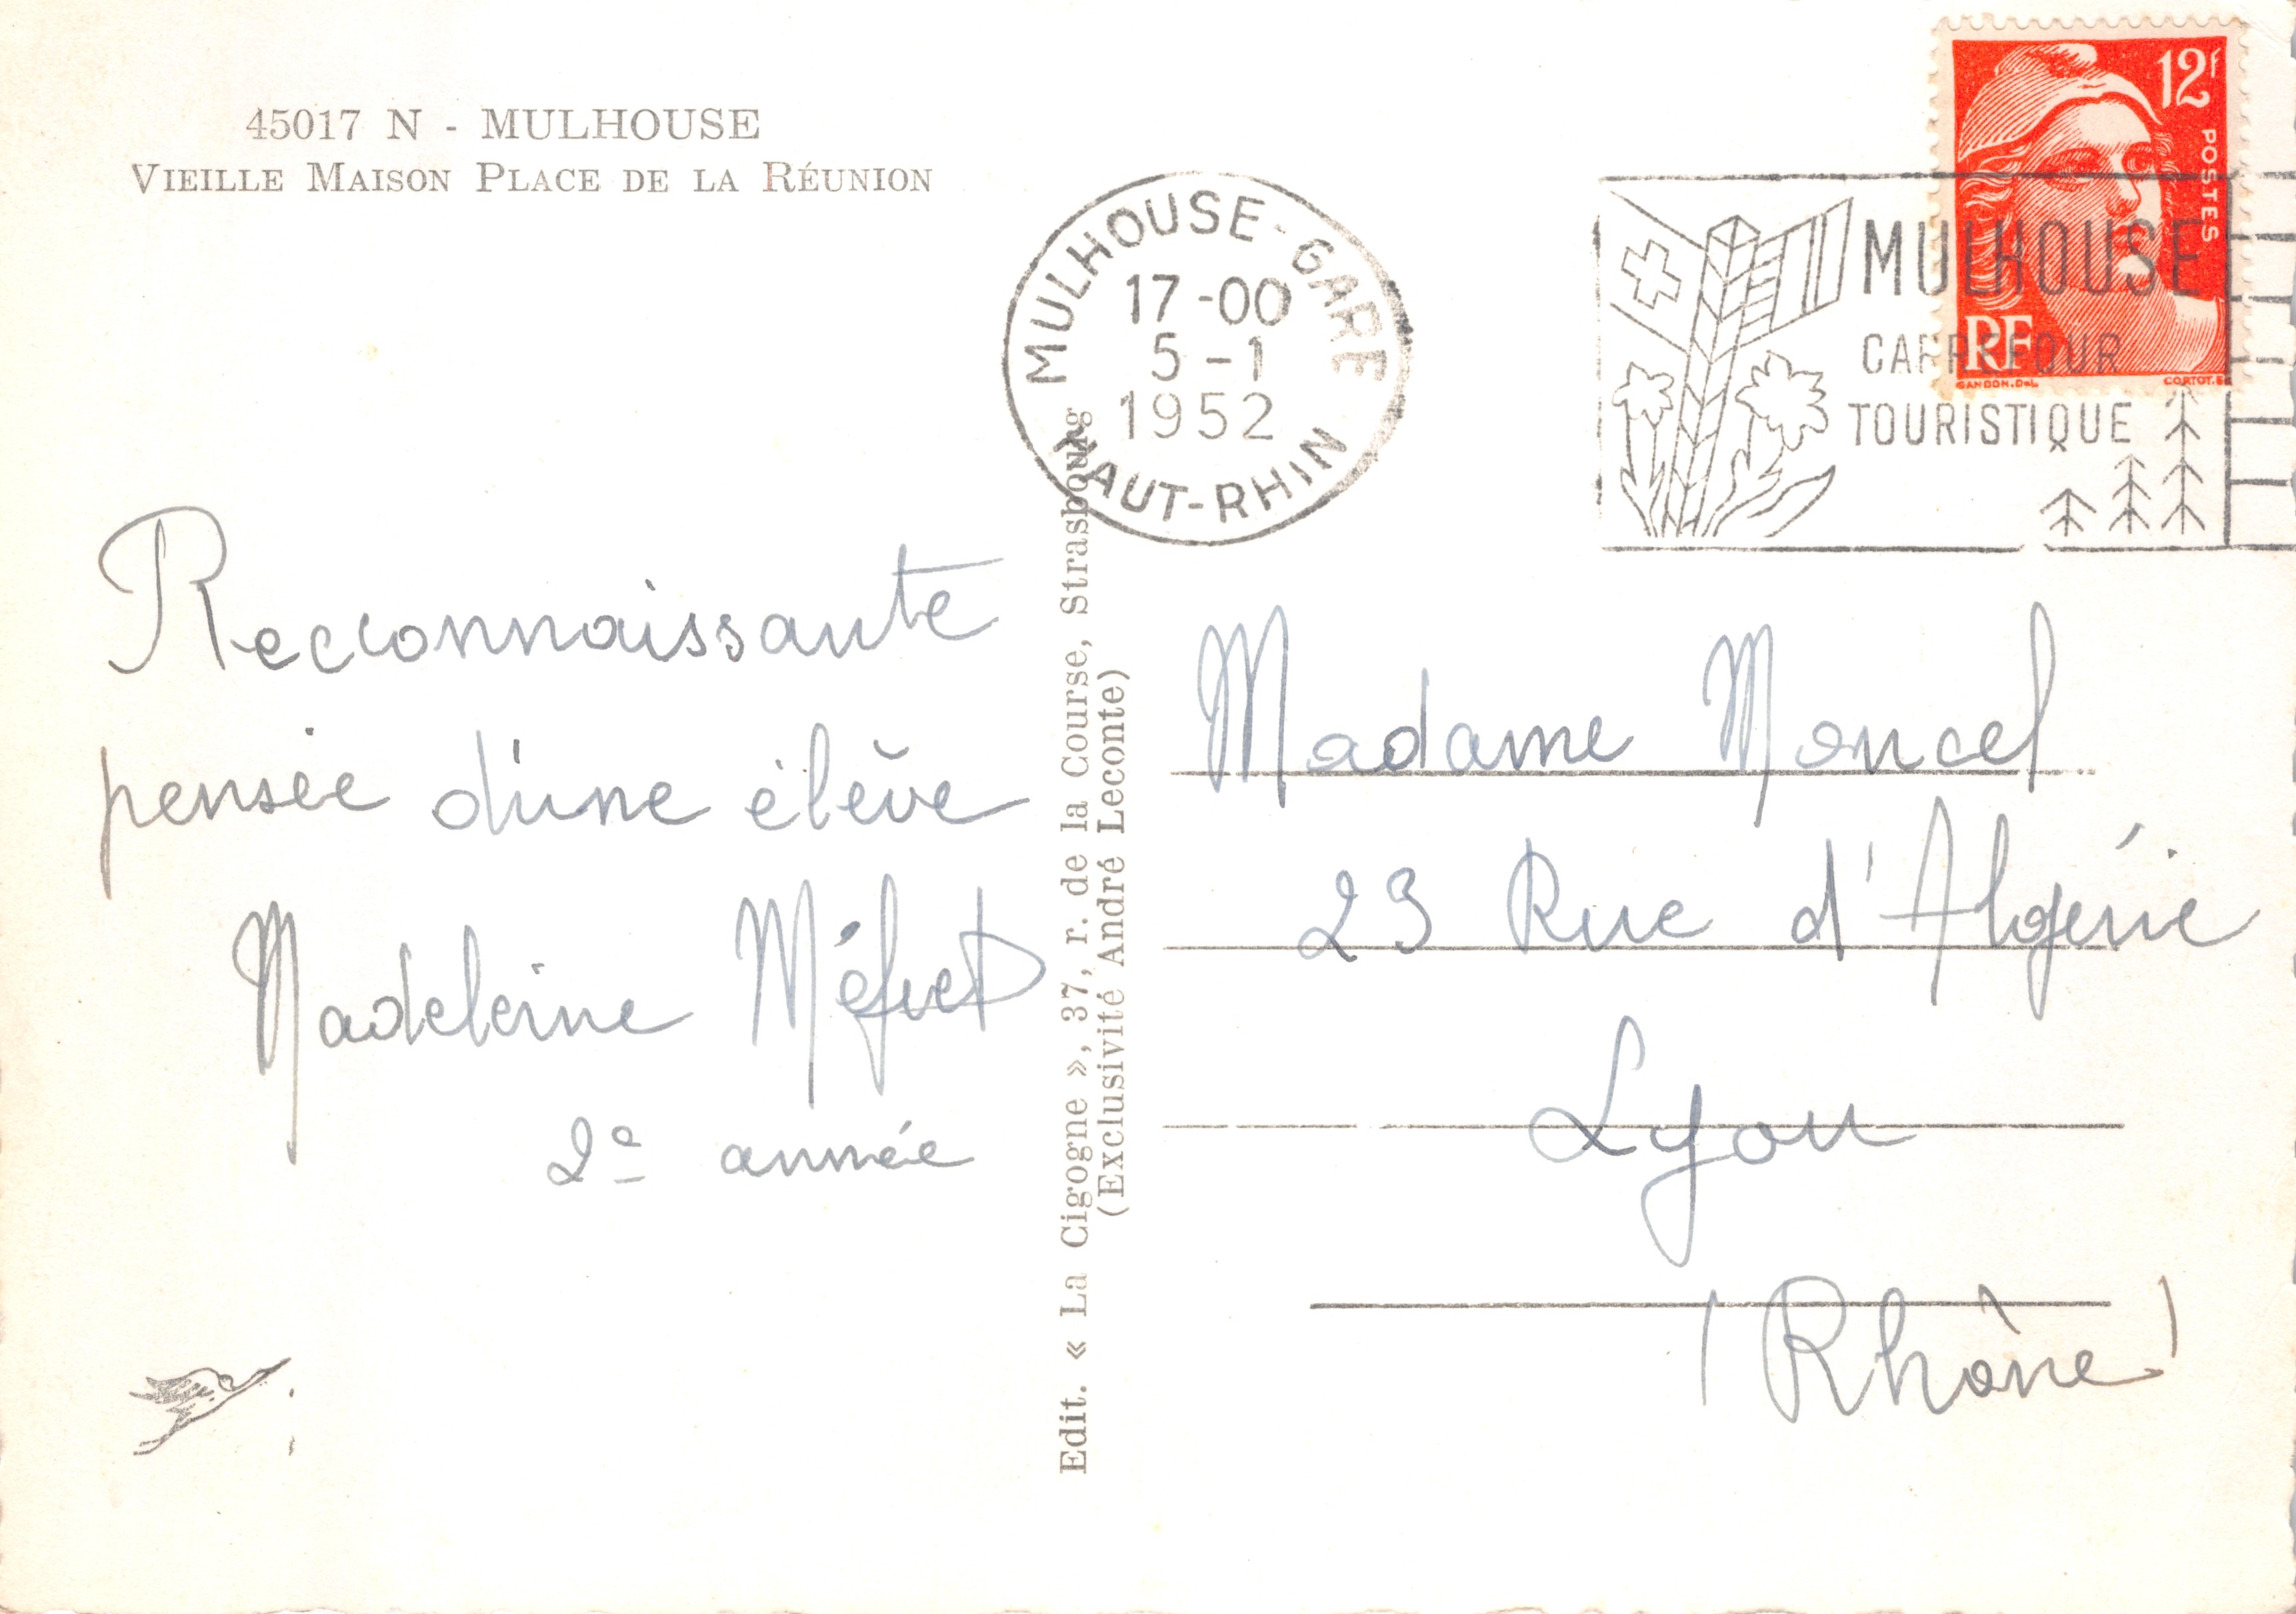 45017 N - MULHOUSE
VIEILLE MAISON PLACE DE LA RÉUNION
MULHOUSE-GARE
17-00
5-1
1952
HAUT-RHIN
MULHOUSE
CARREFOUR
TOURISTIQUE
12f
POSTES
RF
GANDON.DEL
CORTOT.
Reconnaissante
pensée d'une élève
Madeleine
2e année
Edit. « La Cigogne », 37, r. de la Course, Strasbourg
(Exclusivité André Leconte)
Madame Moncel
23 Rue d'Algérie
Lyon
(Rhône)